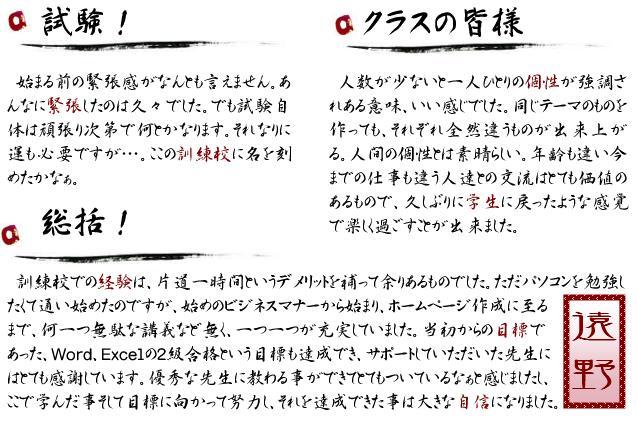 試験！
始まる前の緊張感がなんとも言えません。あ
んなに緊張したのは久々でした。でも試験自
体は頑張り次第で何とかなります。それなりに
運も必要ですが…。この訓練校に名を刻
めたかなぁ。
クラスの皆様
人数が少ないと一人ひとりの個性が強調さ
れある意味、いい感じでした。同じテーマのものを
作っても、それぞれ全然違うものが出来上が
る。人間の個性とは素晴らしい。年齢も違い今
までの仕事も違う人達との交流はとても価値の
あるもので、久しぶりに学生に戻ったような感覚
で楽しく過ごすことが出来ました。
総括！
訓練校での経験は、片道一時間というデメリットを補って余りあるものでした。ただパソコンを勉強し
たくて通い始めたのですが、始めのビジネスマナーから始まり、ホームページ作成に至る
まで、何一つ無駄な講義など無く、一つ一つが充実していました。当初からの目標で
あった、Word、Excelの2級合格という目標も達成でき、サポートしていただいた先生に
はとても感謝しています。優秀な先生に教わる事ができてとてもついているなぁと感じましたし、
ここで学んだ事そして目標に向かって努力し、それを達成できた事は大きな自信になりました。
遠野